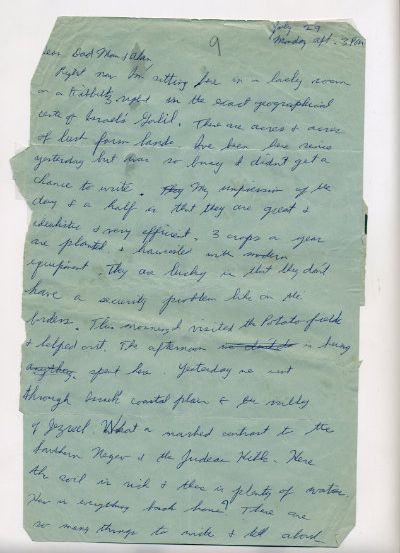 July 29
9 Monday aft. 3 PM
Dear Dad Mom & Alan
Right now I'm sitting here in a lovely room
on a Kibbutz right in the exact geographical
center of Israels Galil. There are acres & acres
of lush farm lands. Ive been here since
yesterday but was so busy I didn't get a
chance to write. They My impression of the
day & a half is that they are great &
idealistic & very efficient. 3 crops a year
are planted & harvested with modern
equipment. They are lucky in that they don't
have a security problem like on the
borders. This morning I visited the Potato fields
& helped out. The afternoon is being
anything spent here. Yesterday we went
through Israeli coastal plain & the valley
of Jezreel. What a marked contrast to the
Southern Negev & the Judean Hills. Here
the soil is rich & there is plenty of water.
How is everything back home? There are
so many things to write & tell about